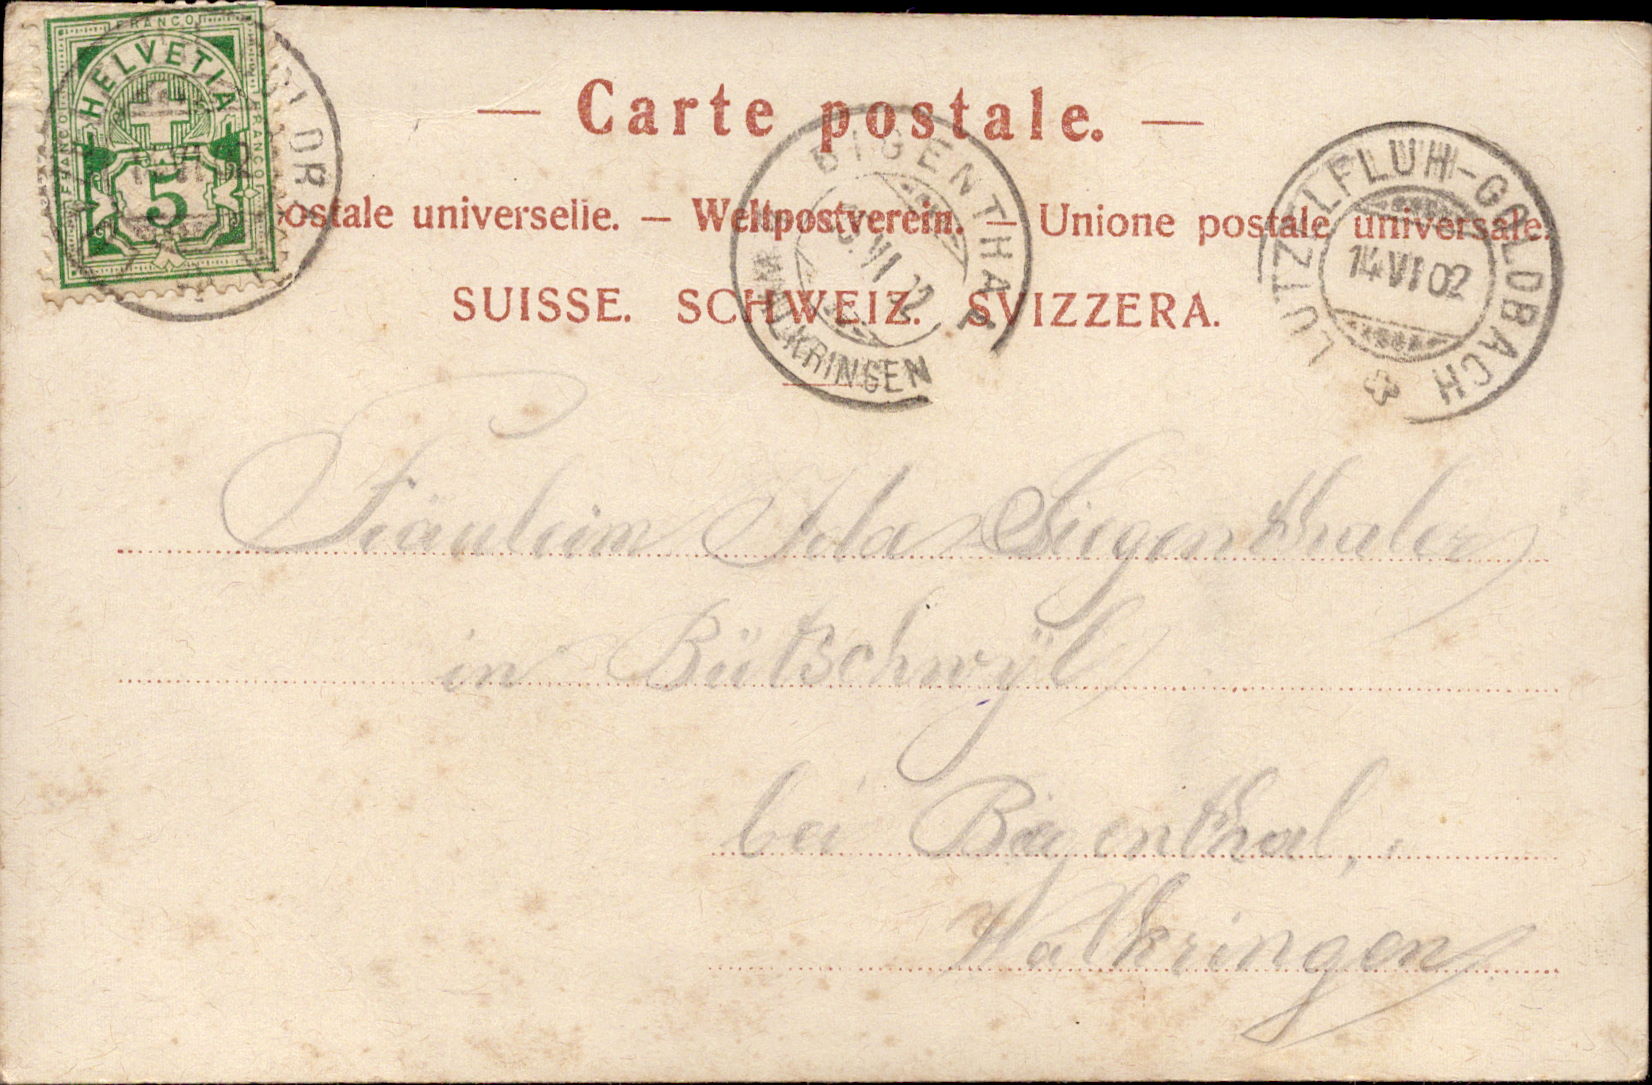 FRANCO
HELVETIA
FRANCO
FRANCO
5
— Carte postale. —
postale universelle. — Weltpostverein. — Unione postale universale.
SUISSE. SCHWEIZ. SVIZZERA.
BIGENTHAL
VI 02
WALKRINGEN
LÜTZELFLÜH-GOLDBACH
14 VI 02
Fräulein Ida Siegenthaler
in Bütschwÿl
bei Bigenthal,
Walkringen